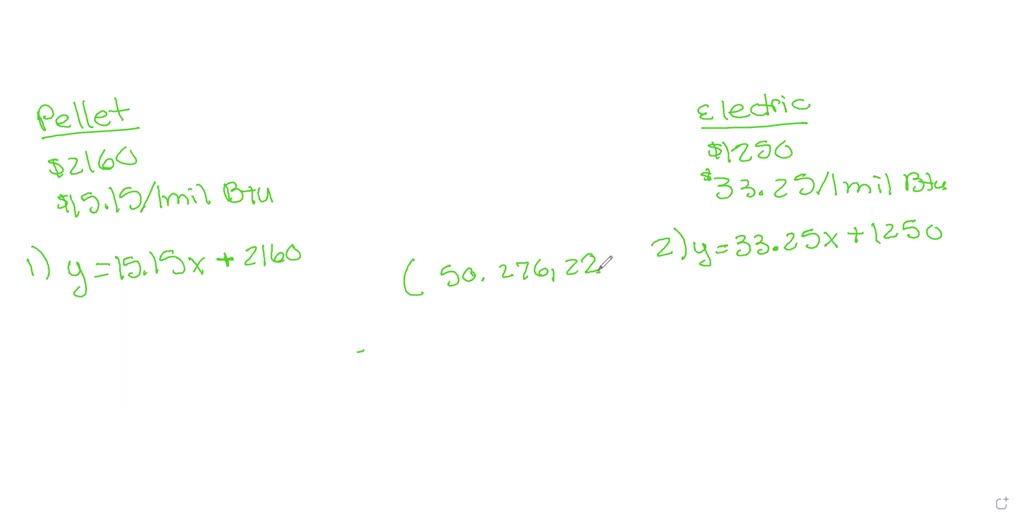 Pellet
$2160
$15.15/1mil Btu
1) y=15.15x+2160
(50.276,22
Electric
$1250
$33.25/1mil Btu
2) y=33.25x+1250